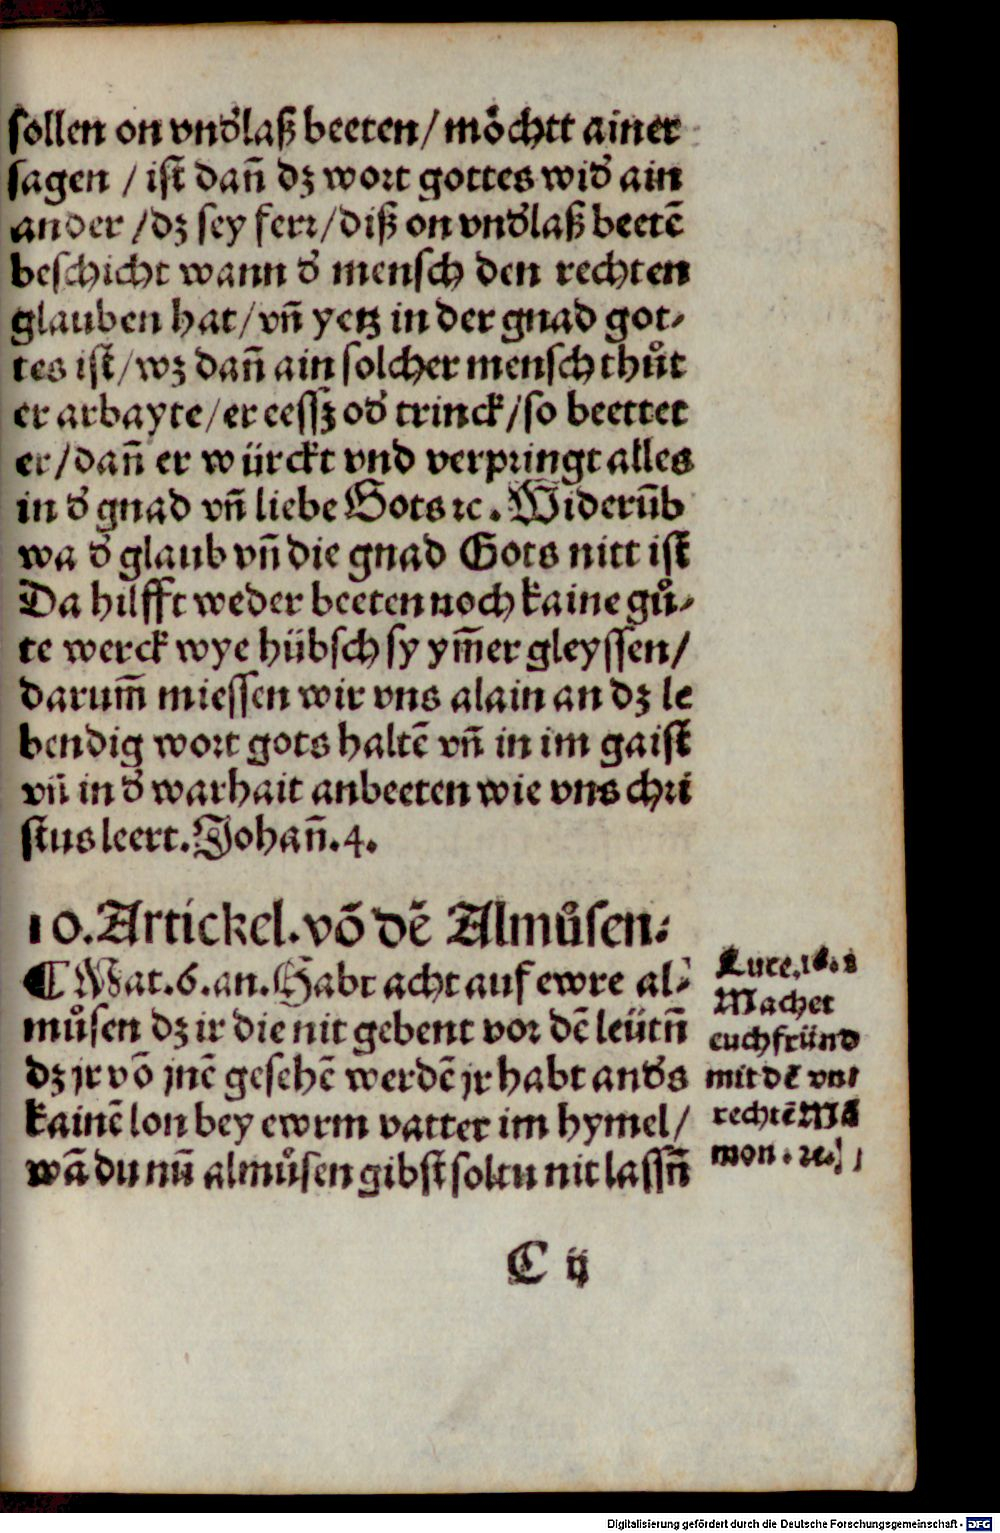 sollen on vnd̓laß beeten/ möchtt ainer
sagen / ist dañ dz wort gottes wid̓ ain
ander /dz sey ferr/diß on vnd̓laß beetē
beschicht wann d̓ mensch den rechten
glauben hat/vñ yetz in der gnad got⸗
tes ist/wz dañ ain solcher mensch thůt
er arbayte/er eessz od̓ trinck/so beettet
er/dañ er würckt vnd verpringt alles
in d̓ gnad vñ liebe Gots ꝛc. Widerũb
wa d̓ glaub vñ die gnad Gots nitt ist
Da hilfft weder beeten noch kaine gů⸗
te werck wye hübsch sy ym̃er gleyssen/
darum̃ miessen wir vns alain an dz le
bendig wort gots haltē vñ in im gaist
vñ in d̓ warhait anbeeten wie vns chri
stus leert. Johañ.4.
10. Artickel. võ dē Almůsen.
¶ Mat.6.an. Habt acht auf ewre al⸗
můsen dz ir die nit gebent vor dē leütñ
dz jr võ jnē gesehē werdē jr habt and̓s
kainē lon bey ewrm vatter im hymel/
wā du nũ almůsen gibst soltu nit lassñ
Luce.16.
Machet
euch fründ
mit dē vnt
rechtē Mā
mon. ꝛc.
C ij
Digitalisierung gefördert durch die Deutsche Forschungsgemeinschaft - DFG